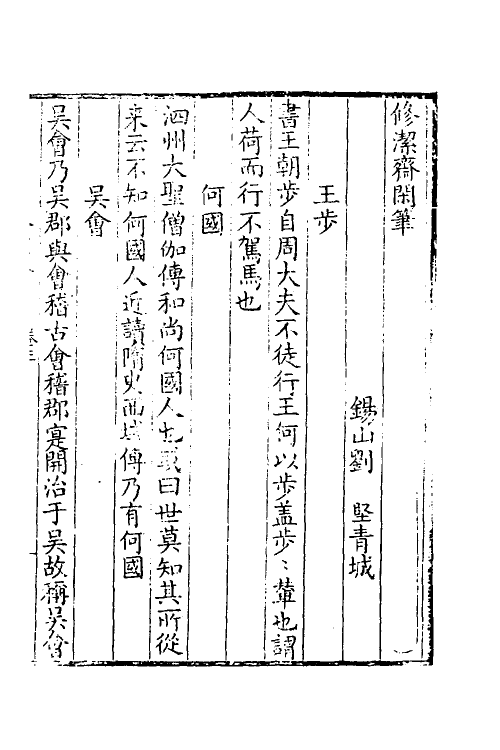 修潔齋閑筆
錫山劉　堅青城
王步
書王朝步自周大夫不徒行王何以步盖步〻輦也謂
人荷而行不駕馬也
何國
泗州大聖僧伽傳和尚何國人也又曰世莫知其所從
来云不知何國人近讀隋史西域傳乃有何國
吳會
吳會乃吳郡與會稽古會稽郡寔開治于吳故稱吳會
卷三